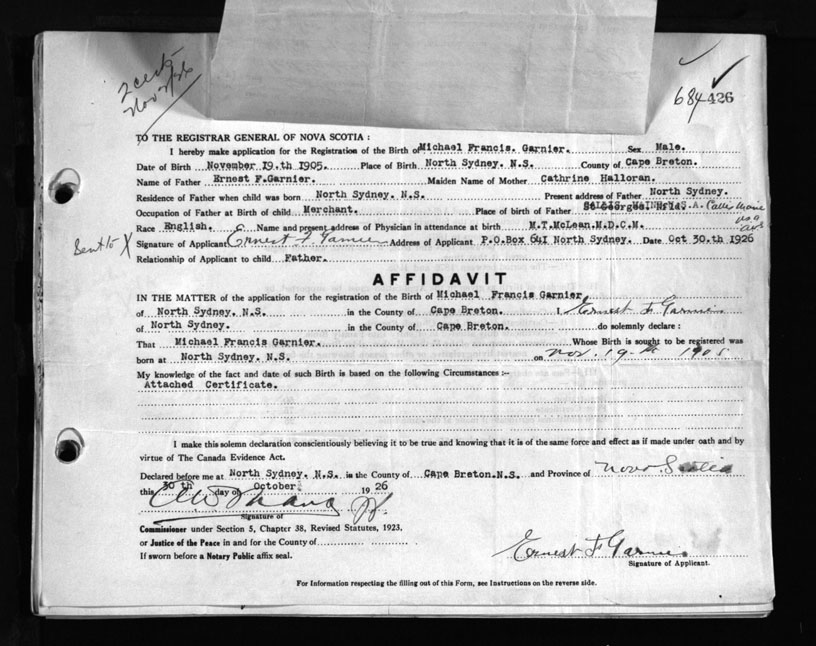 2 certs
Nov 2/26
684426
TO THE REGISTRAR GENERAL OF NOVA SCOTIA :
I hereby make application for the Registration of the Birth of Michael Francis. Garnier. Sex Male.
Date of Birth November 19.th 1905. Place of Birth North Sydney. N.S. County of Cape Breton.
Name of Father Ernest F.Garnier. Maiden Name of Mother Cathrine Halloran.
Residence of Father when child was born North Sydney. N.S. Present address of Father North Sydney.
Occupation of Father at Birth of child Merchant. Place of birth of Father St Georges. Nfld. Maine
Race English. Name and present address of Physician in attendance at birth M.T.McLean.M.D.C.M.
Sent to X Signature of Applicant Ernest F Garnier Address of Applicant P.O.Box 641 North Sydney. Date Oct 30.th 1926
Relationship of Applicant to child Father.
AFFIDAVIT
IN THE MATTER of the application for the registration of the Birth of Michael Francis Garnier
of North Sydney. N.S. in the County of Cape Breton. I Ernest F Garnier
of North Sydney. in the County of Cape Breton. do solemnly declare :
That Michael Francis Garnier. Whose Birth is sought to be registered was
born at North Sydney. N.S. on Nov. 19th 1905
My knowledge of the fact and date of such Birth is based on the following Circumstances :—
Attached Certificate.
I make this solemn declaration conscientiously believing it to be true and knowing that it is of the same force and effect as if made under oath and by
virtue of The Canada Evidence Act.
Declared before me at North Sydney. N.S. in the County of Cape Breton.N.S. and Province of Nova Scotia
this 30 th day of October 1926
Signature of
Commissioner under Section 5, Chapter 38, Revised Statutes, 1923.
or Justice of the Peace in and for the County of
If sworn before a Notary Public affix seal.
Ernest F Garnier.
Signature of Applicant.
For Information respecting the filling out of this Form, see Instructions on the reverse side.